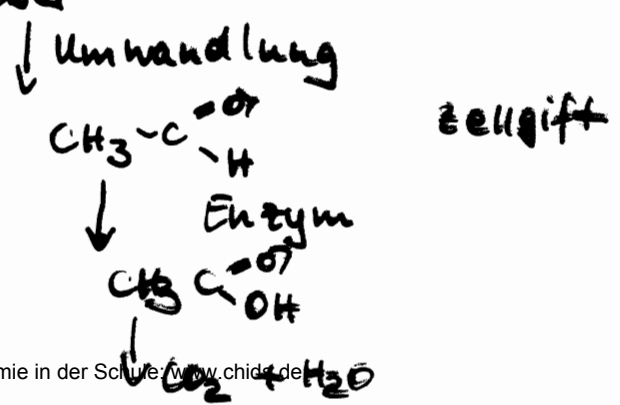 ↓ Umwandlung
CH3-C=O
H
zellgift
↓ Enzym
CH3 C=O
OH
mie in der Schule: www.chids.de
↓ CO2 + H2O